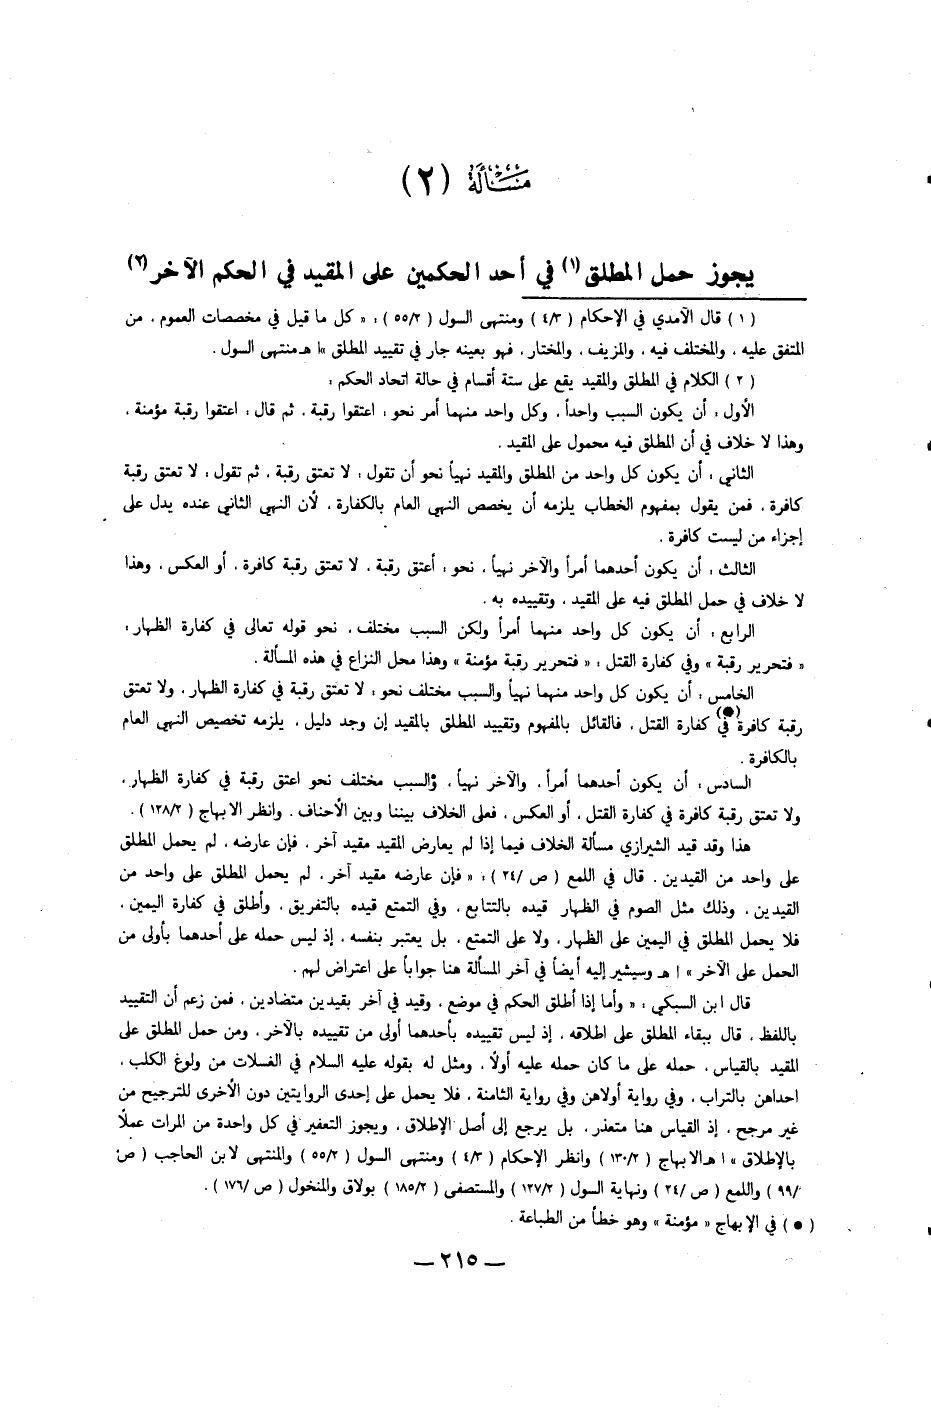 مسألة (٢)
يجوز حمل المطلق (١) في أحد الحكمين على المقيد في الحكم الآخر (٢)
(١) قال الآمدي في الإحكام (٤/٣) ومنتهى السول (٥٥/٢) : « كل ما قيل في مخصصات العموم ، من
المتفق عليه ، والمختلف فيه ، والمزيف ، والمختار ، فهو بعينه جار في تقييد المطلق » ا هـ منتهى السول .
(٢) الكلام في المطلق والمقيد يقع على ستة أقسام في حالة اتحاد الحكم :
الأول : أن يكون السبب واحداً ، وكل واحد منهما أمر نحو : اعتقوا رقبة ، ثم قال : اعتقوا رقبة مؤمنة ،
وهذا لا خلاف في أن المطلق فيه محمول على المقيد .
الثاني : أن يكون كل واحد من المطلق والمقيد نهياً نحو أن تقول : لا تعتق رقبة ، ثم تقول : لا تعتق رقبة
كافرة ، فمن يقول بمفهوم الخطاب يلزمه أن يخصص النهي العام بالكفارة ، لأن النهي الثاني عنده يدل على
إجزاء من ليست كافرة .
الثالث : أن يكون أحدهما أمراً والآخر نهياً ، نحو : أعتق رقبة ، لا تعتق رقبة كافرة ، أو العكس ، وهذا
لا خلاف في حمل المطلق فيه على المقيد ، وتقييده به .
الرابع : أن يكون كل واحد منهما أمراً ولكن السبب مختلف ، نحو قوله تعالى في كفارة الظهار :
« فتحرير رقبة » وفي كفارة القتل : « فتحرير رقبة مؤمنة » وهذا محل النزاع في هذه المسألة .
الخامس : أن يكون كل واحد منهما نهياً والسبب مختلف نحو : لا تعتق رقبة في كفارة الظهار ، ولا تعتق
رقبة كافرة (●) في كفارة القتل ، فالقائل بالمفهوم وتقييد المطلق بالمقيد إن وجد دليل ، يلزمه تخصيص النهي العام
بالكافرة .
السادس : أن يكون أحدهما أمراً ، والآخر نهياً ، والسبب مختلف نحو اعتق رقبة في كفارة الظهار ،
ولا تعتق رقبة كافرة في كفارة القتل ، أو العكس ، فعلى الخلاف بيننا وبين الأحناف . وانظر الابهاج (١٢٨/٢) .
هذا وقد قيد الشيرازي مسألة الخلاف فيما إذا لم يعارض المقيد مقيد آخر ، فإن عارضه ، لم يحمل المطلق
على واحد من القيدين . قال في اللمع (ص /٢٤) : « فإن عارضه مقيد آخر ، لم يحمل المطلق على واحد من
القيدين ، وذلك مثل الصوم في الظهار قيده بالتتابع ، وفي التمتع قيده بالتفريق ، وأطلق في كفارة اليمين ،
فلا يحمل المطلق في اليمين على الظهار ، ولا على التمتع ، بل يعتبر بنفسه ، إذ ليس حمله على أحدهما بأولى من
الحمل على الآخر » ا هـ وسيشير إليه أيضاً في آخر المسألة هنا جواباً على اعتراض لهم .
قال ابن السبكي : « وأما إذا أطلق الحكم في موضع ، وقيد في آخر بقيدين متضادين ، فمن زعم أن التقييد
باللفظ ، قال ببقاء المطلق على اطلاقه ، إذ ليس تقييده بأحدهما أولى من تقييده بالآخر ، ومن حمل المطلق على
المقيد بالقياس ، حمله على ما كان حمله عليه أولاً ، ومثل له بقوله عليه السلام في الغسلات من ولوغ الكلب ،
احداهن بالتراب ، وفي رواية أولاهن وفي رواية الثامنة ، فلا يحمل على إحدى الروايتين دون الأخرى للترجيح من
غير مرجح ، إذ القياس هنا متعذر ، بل يرجع إلى أصل الإطلاق ، ويجوز التعفير في كل واحدة من المرات عملاً
بالإطلاق » ا هـ الابهاج (١٣٠/٢) وانظر الإحكام (٤/٣) ومنتهى السول (٥٥/٢) والمنتهى لابن الحاجب (ص
/٩٩) واللمع (ص /٢٤) ونهاية السول (١٢٧/٢) والمستصفى (١٨٥/٢) بولاق والمنخول (ص /١٧٦) .
(●) في الإبهاج « مؤمنة » وهو خطأ من الطباعة .
— ٢١٥ —